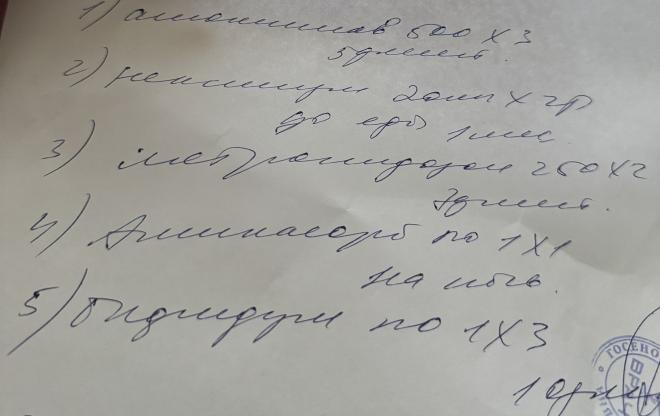 1) амоксиклав 500 x 3
5 дней.
2) нексиум 20мг x 2р
до еды 1 мес.
3) метронидазол 250 x 2
7 дней.
4) по 1 x 1
на ночь.
5) по 1 x 3
10 дн
ГОСЕНО
ВРА